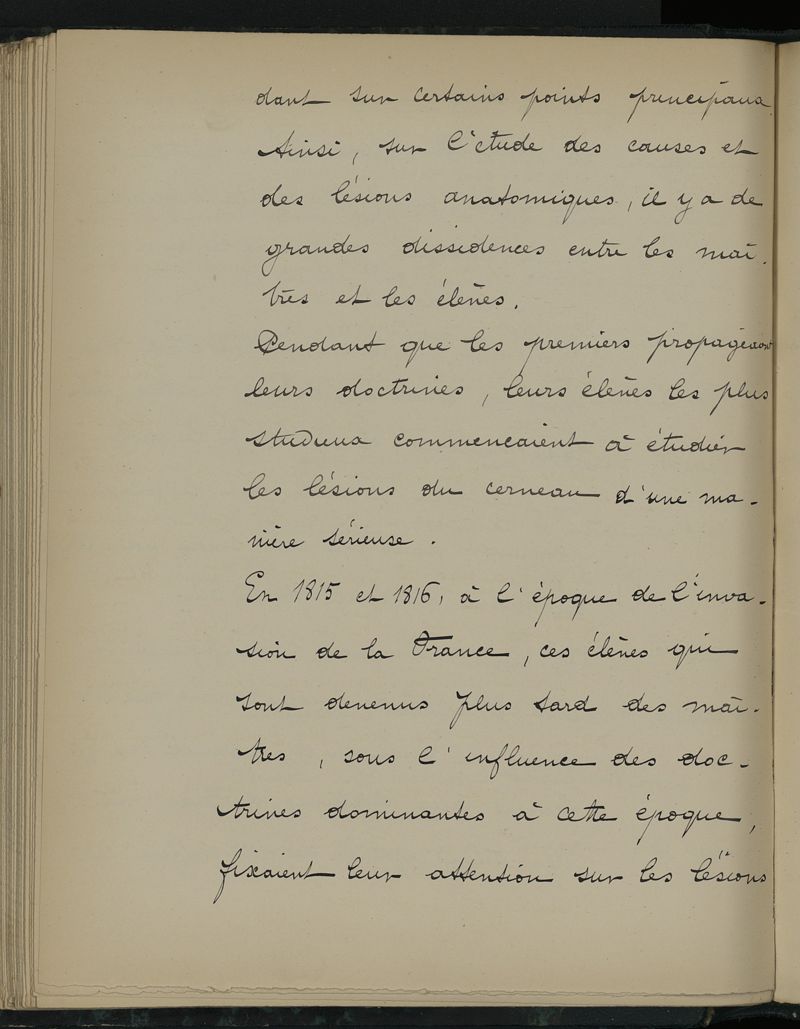 dant sur certains points principaux.
Ainsi, sur l'étude des causes et
des lésions anatomiques, il y a de
grandes dissidences entre les maî-
tres et les élèves.
Pendant que les premiers propageaient
leurs doctrines, leurs élèves les plus
studieux commencaient à étudier
les lésions du cerveau d'une ma-
nière sérieuse.
En 1815 et 1816, à l'époque de l'inva-
sion de la France, ces élèves qui
sont devenus plus tard des maî-
tres, sous l'influence des doc-
trines dominantes à cette époque,
fixaient leur attention sur les lésions